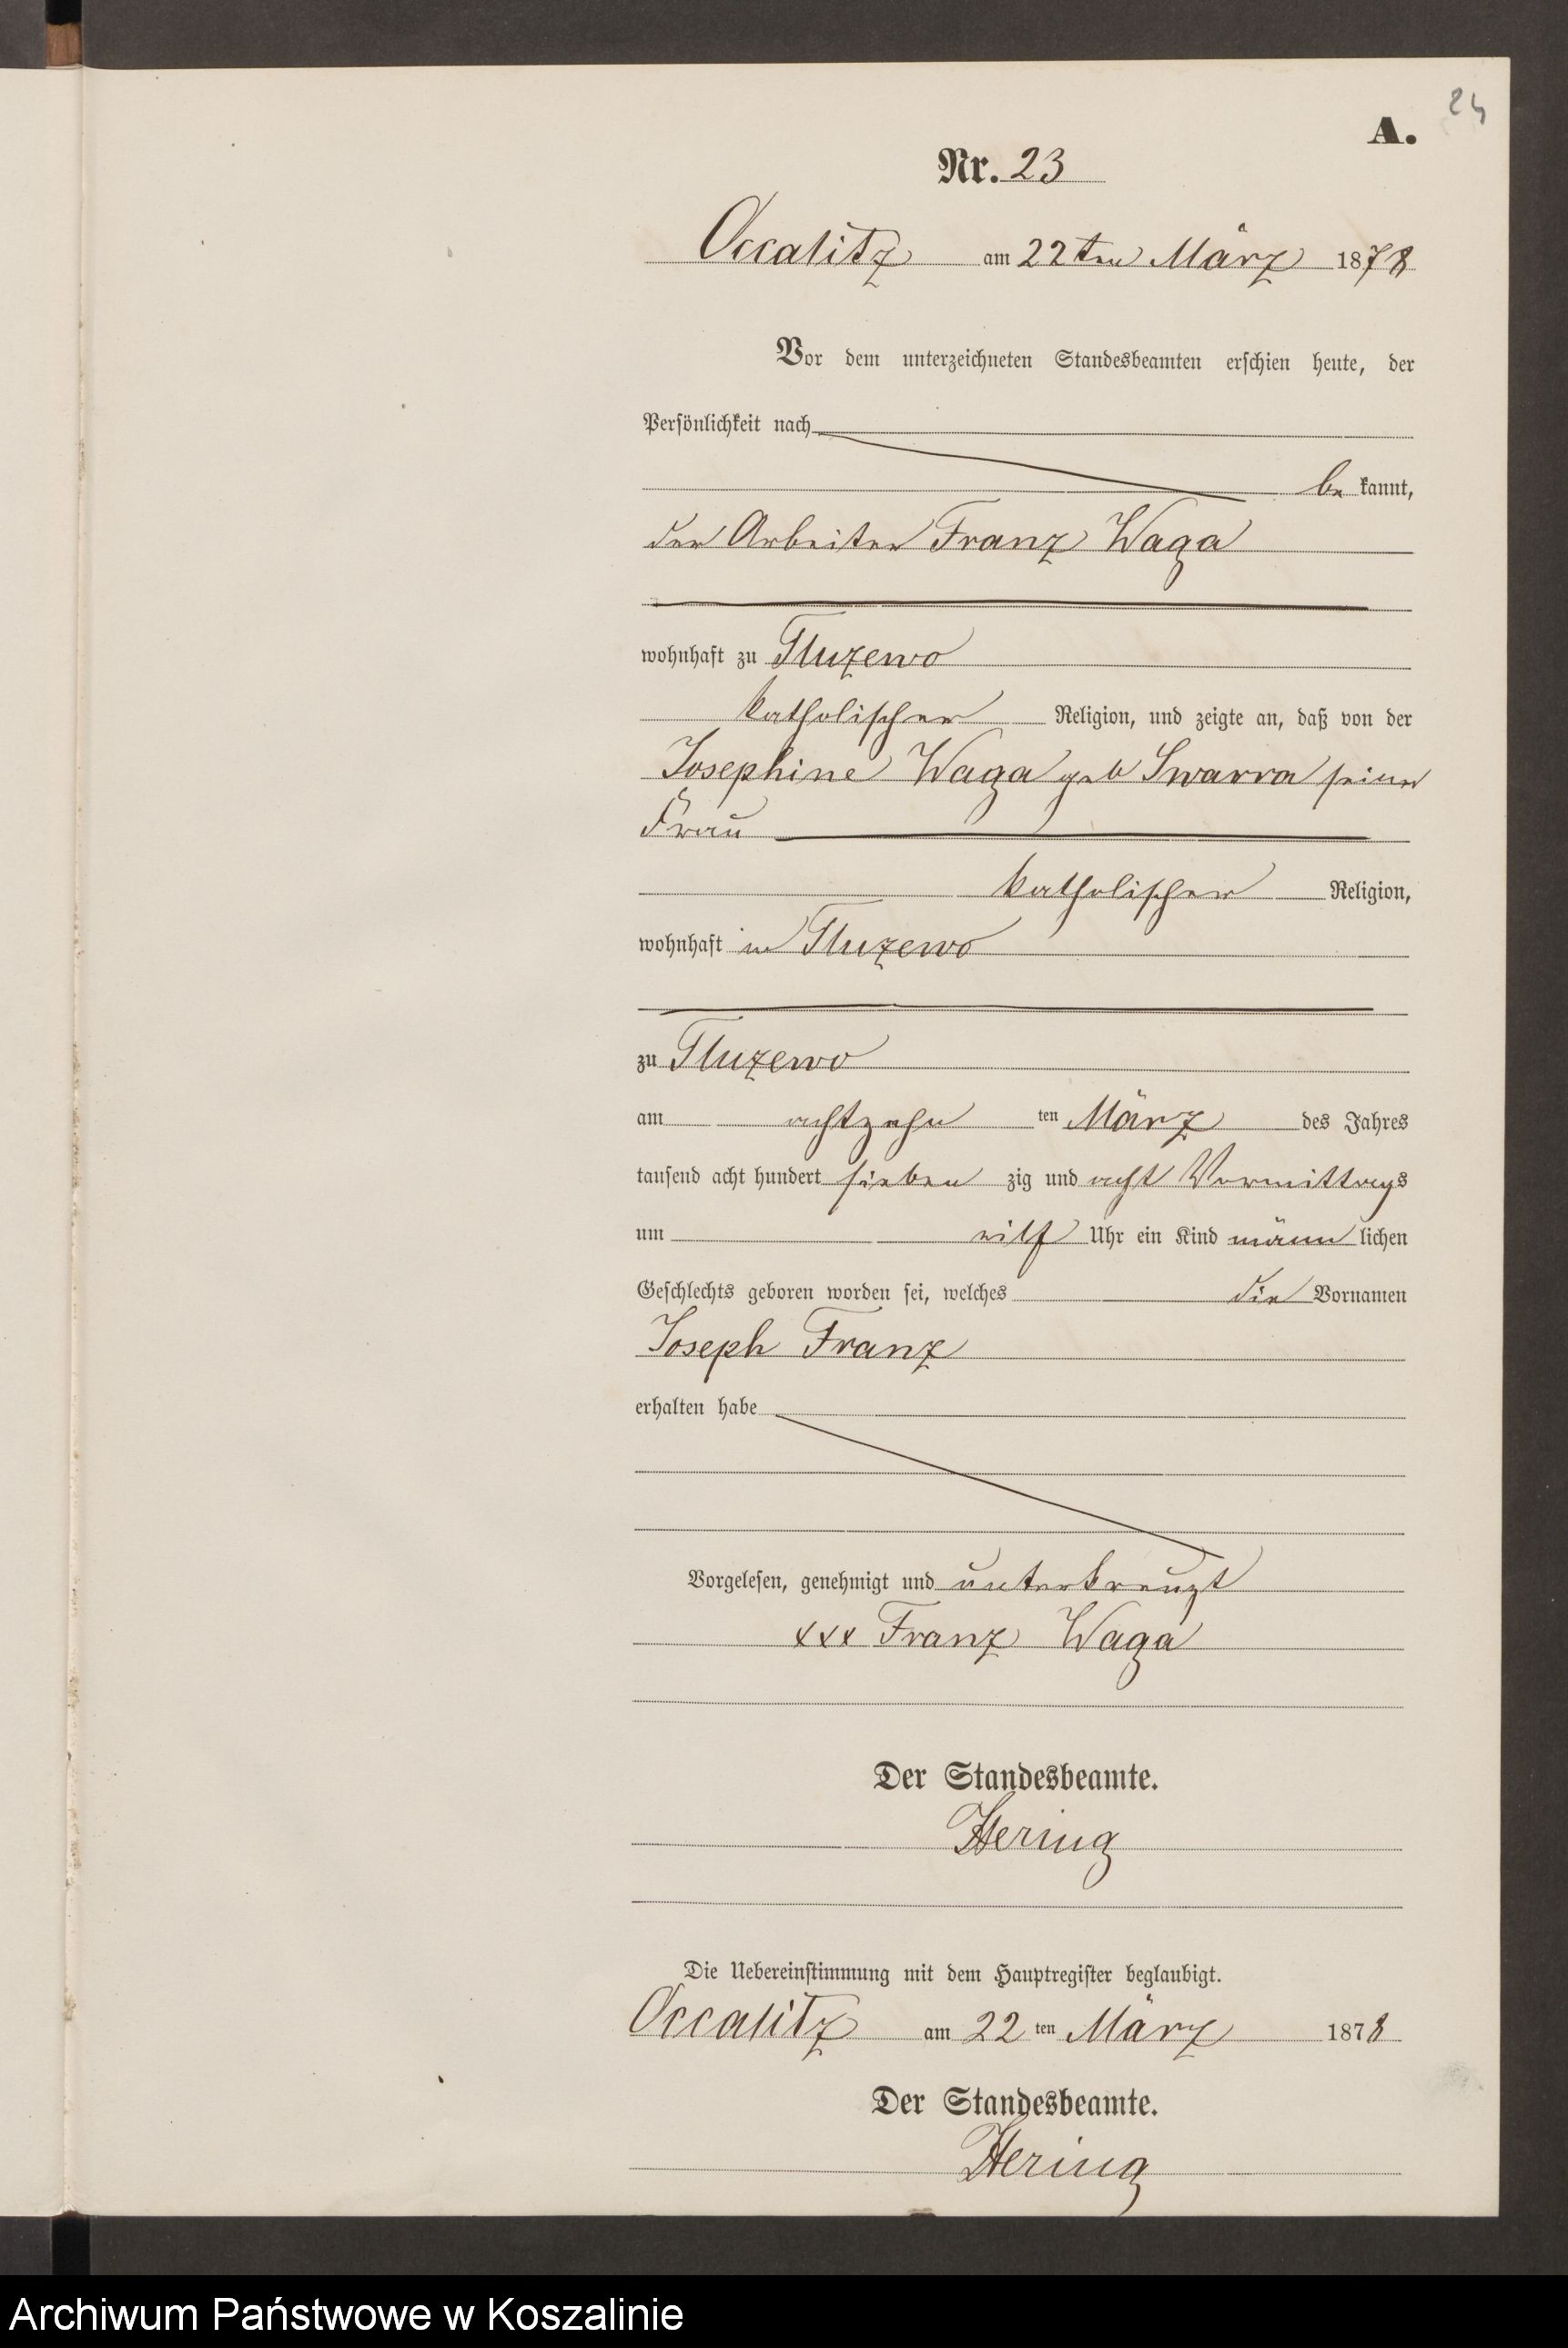 24
A.
Nr. 23
Occalitz am 22ten März 1878
Vor dem unterzeichneten Standesbeamten erschien heute, der
Persönlichkeit nach
be kannt,
der Arbeiter Franz Waga
wohnhaft zu Tluzewo
katholischer Religion, und zeigte an, daß von der
Josephine Waga geb Swarra seiner
Frau
katholischer Religion,
wohnhaft in Tluzewo
zu Tluzewo
am achtzehn ten März des Jahres
tausend acht hundert sieben zig und acht Vormittags
um eilf Uhr ein Kind männ lichen
Geschlechts geboren worden sei, welches die Vornamen
Joseph Franz
erhalten habe
Vorgelesen, genehmigt und unterkreuzt
xxx Franz Waga
Der Standesbeamte.
Hering
Die Uebereinstimmung mit dem Hauptregister beglaubigt.
Occalitz am 22 ten März 1878
Der Standesbeamte.
Hering
Archiwum Państwowe w Koszalinie